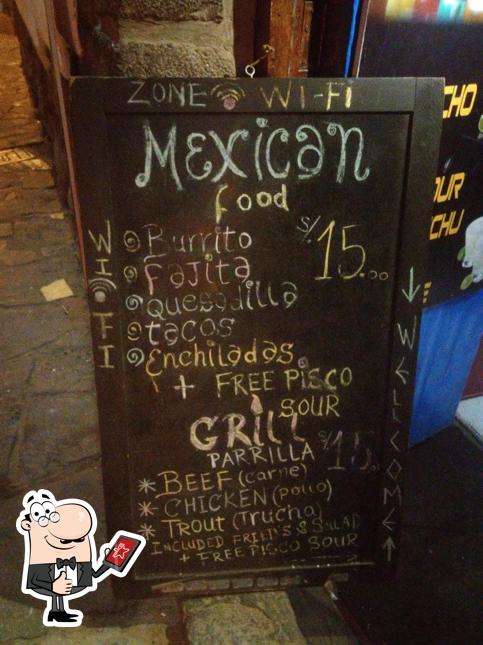 ZONE WI-FI
MEXICAN
food
WIFI
Burrito
S/. 15.00
fajita
quesadilla
tacos
Enchiladas
+ FREE PISCO
SOUR
GRILL
PARRILLA
S/ 15.
* BEEF (carne)
* CHICKEN (pollo)
* TROUT (Trucha)
INCLUDED FRIED'S & SALAD
+ FREE PISCO SOUR
WELLCOME
CHO
OUR
CHU